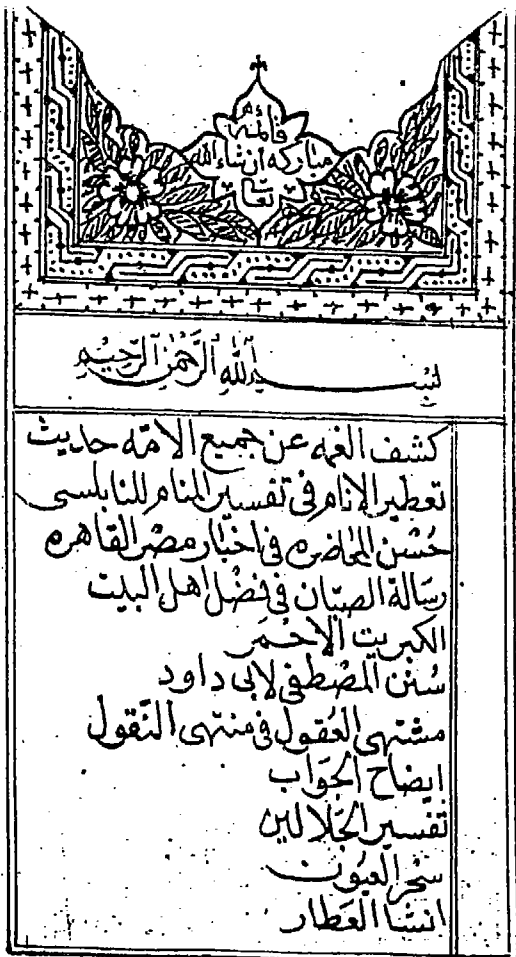 قائمة
مباركه ان شاء الله
تعا
بسم الله الرَّحمٰن الرَّحيم
كشف الغمه عن جميع الامّه حديث
تعطير الانام فى تفسير المنام للنابلسى
حُسْن المحاضره فى اخبار مصر القاهره
رسَالة الصبّان فى فضْل اهل البيت
الكبريت الاحْمَر
سُنن المصْطفى لابى داود
مشتهى العُقول فى منتهى النّقول
ايضاح الجَوَاب
تفسير الجَلالين
سحْر العيُون
انشا العَطار